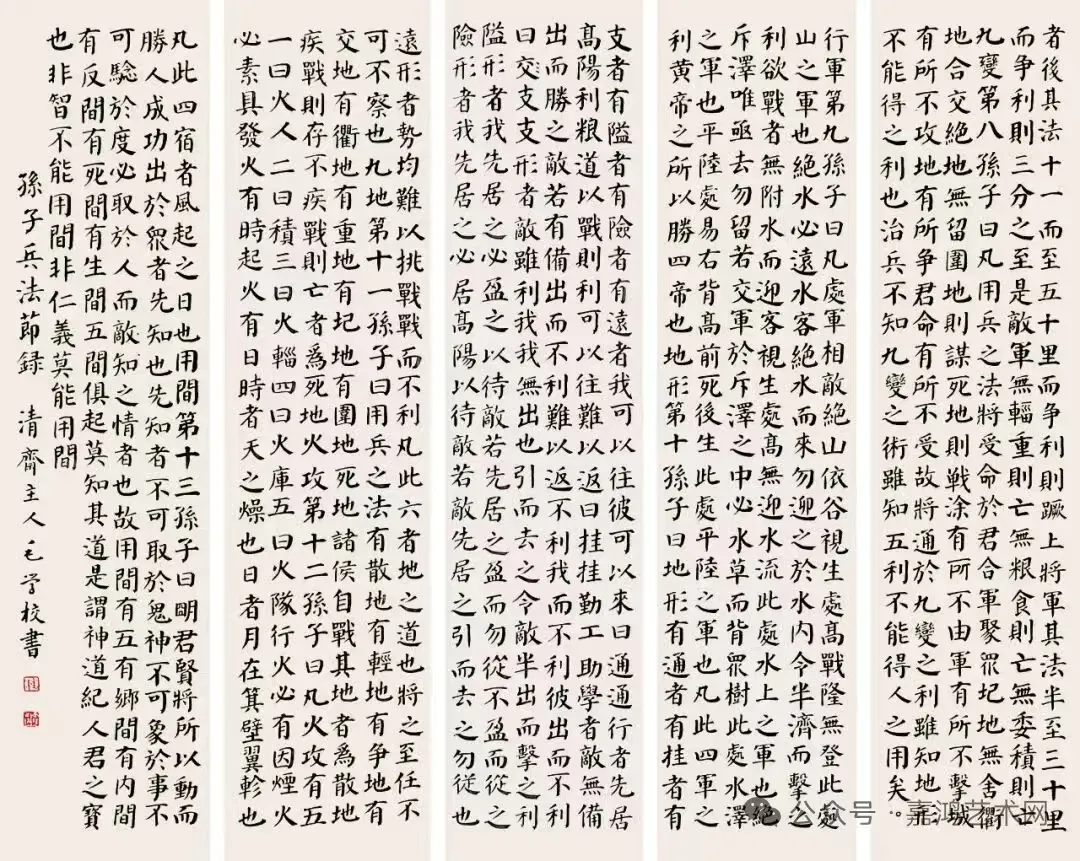 者後其法十一而至五十里而爭利則蹶上將軍其法半至三十里
而爭利則三分之至是敵軍無輜重則亡無粮食則亡無委積則亡
九變第八孫子曰凡用兵之法將受命於君合軍聚眾圮地無舍衢
地合交絕地無留圍地則謀死地則戰涂有所不由軍有所不擊城
有所不攻地有所爭君命有所不受故將通於九變之利雖知地形
不能得之利也治兵不知九變之術雖知五利不能得人之用矣
行軍第九孫子曰凡處軍相敵絕山依谷視生處高戰隆無登此處
山之軍也絕水必遠水客絕水而來勿迎之於水內令半濟而擊之
利欲戰者無附水而迎客視生處高無迎水流此處水上之軍也絕
斥澤唯亟去勿留若交軍於斥澤之中必水草而背眾樹此處水澤
之軍也平陸處易右背高前死後生此處平陸之軍也凡此四軍之
利黃帝之所以勝四帝也地形第十孫子曰地形有通者有挂者有
支者有隘者有險者有遠者我可以往彼可以來曰通通行者先居
高陽利粮道以戰則利可以往難以返曰挂挂勤工助學者敵無備
出而勝之敵若有備出而不利難以返不利我而不利彼出而不利
曰交支支形者敵雖利我我無出也引而去之令敵半出而擊之利
隘形者我先居之必盈之以待敵若先居之盈而勿從不盈而從之
險形者我先居之必居高陽以待敵若敵先居之引而去之勿從也
遠形者勢均難以挑戰戰而不利凡此六者地之道也將之至任不
可不察也九地第十一孫子曰用兵之法有散地有輕地有爭地有
交地有衢地有重地有圮地有圍地死地諸侯自戰其地者爲散地
疾戰則存不疾戰則亡者爲死地火攻第十二孫子曰凡火攻有五
一曰火人二曰積三曰火輜四曰火庫五曰火隊行火必有因煙火
必素具發火有時起火有日時者天之燥也日者月在箕壁翼軫也
凡此四宿者風起之日也用間第十三孫子曰明君賢將所以動而
勝人成功出於眾者先知也先知者不可取於鬼神不可象於事不
可驗於度必取於人而敵知之情者也故用間有五有鄉間有內間
有反間有死間有生間五間俱起莫知其道是謂神道紀人君之寶
也非智不能用間非仁義莫能用間
孫子兵法節録 清齋主人毛学校書
公众号·嘉鸿艺术网